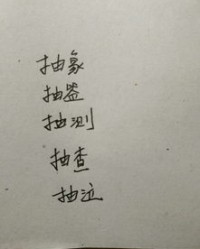 抽象
抽噐
抽测
抽查
抽泣